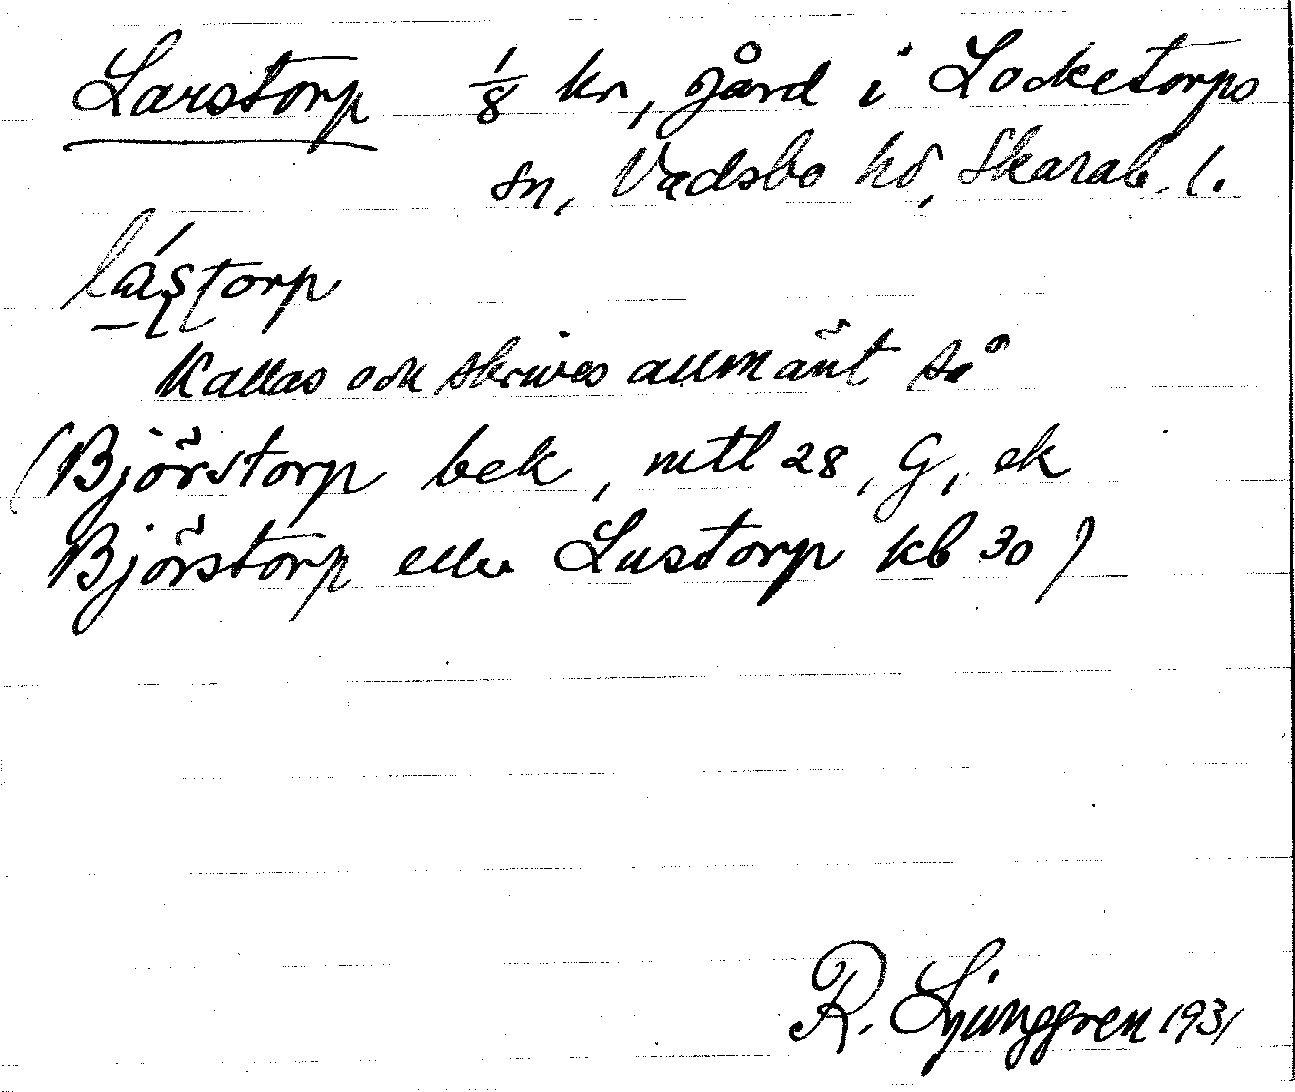 Larstorp 1/8 kr, gård i Locketorps
sn, Vadsbo hd, Skarab. l.
lástorp
Kallas och skrives allmänt så
(Björstorp bek, mtl 28, G, ek
Björstorp eller Lustorp kb 30)
R. Ljunggren 1931